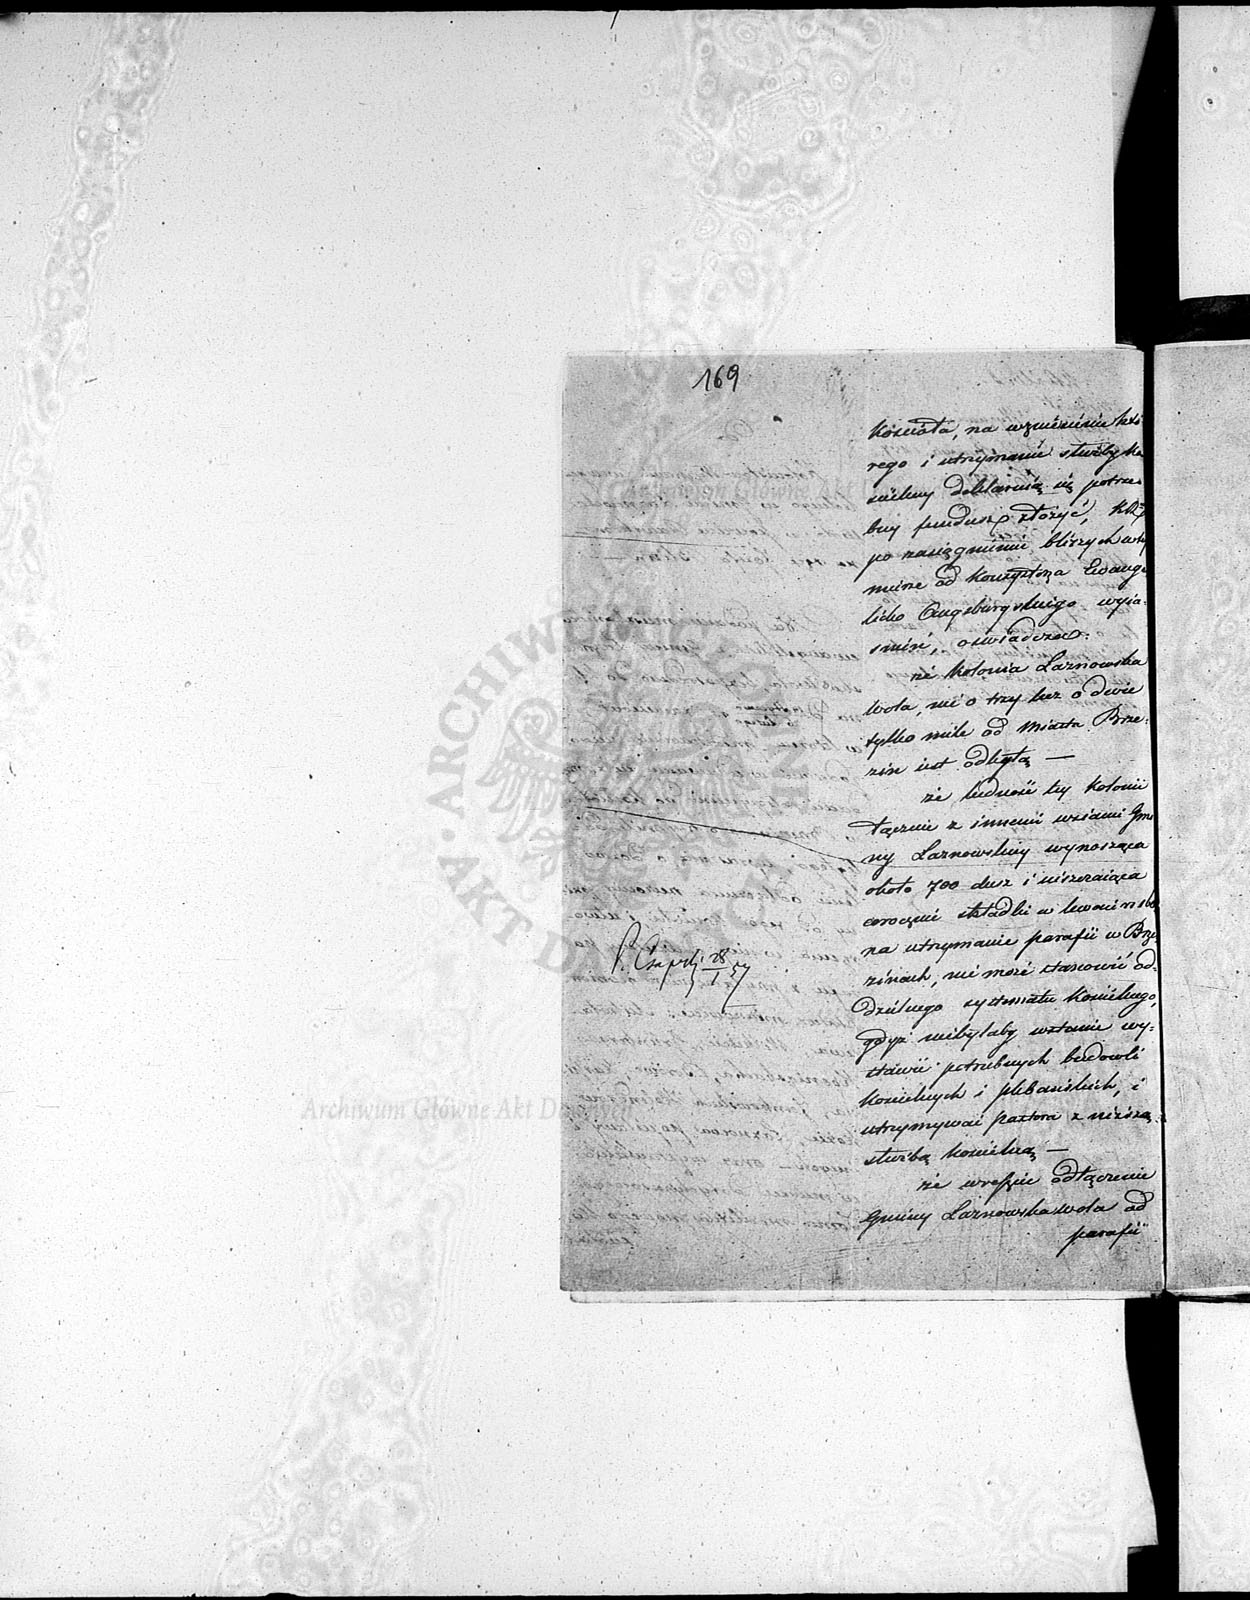 169
kościoła, na wzniesienie któ
rego i utrzymanie służby ko
ścielney deklarują się potrze
bny fundusz złożyć, KRz
po zasięgnieniu bliższych w tey
mierze od Konsystorza Ewange
licko Augsburgskiego wyia-
śnień, oświadcza:
że kolonia Łaznowska
Wola, nie o trzy lecz o dwie
tylko mile od Miasta Brze-
zin iest odległą —
że ludność tey Kolonii
łącznie z innemi wsiami Gmi
ny Łaznowskiey wynosząca
około 700 dusz i uiszczaiąca
corocznie składki w kwocie rs
na utrzymanie parafii w Brze
zinach, nie może stanowić od-
dzielnego systematu kościelnego,
gdyż niebyłaby wstanie wy-
stawić potrzebnych budowli
kościelnych i plebańskich, i
utrzymywać pastora z niższą
służbą kościelną —
że wreszcie odłączenie
Gminy Łaznowska wola od
parafii
P. Czapski 28/1 57
ARCHIWUM GŁÓWNE AKT DAWNYCH
Archiwum Główne Akt Dawnych
Archiwum Główne Akt Dawnych